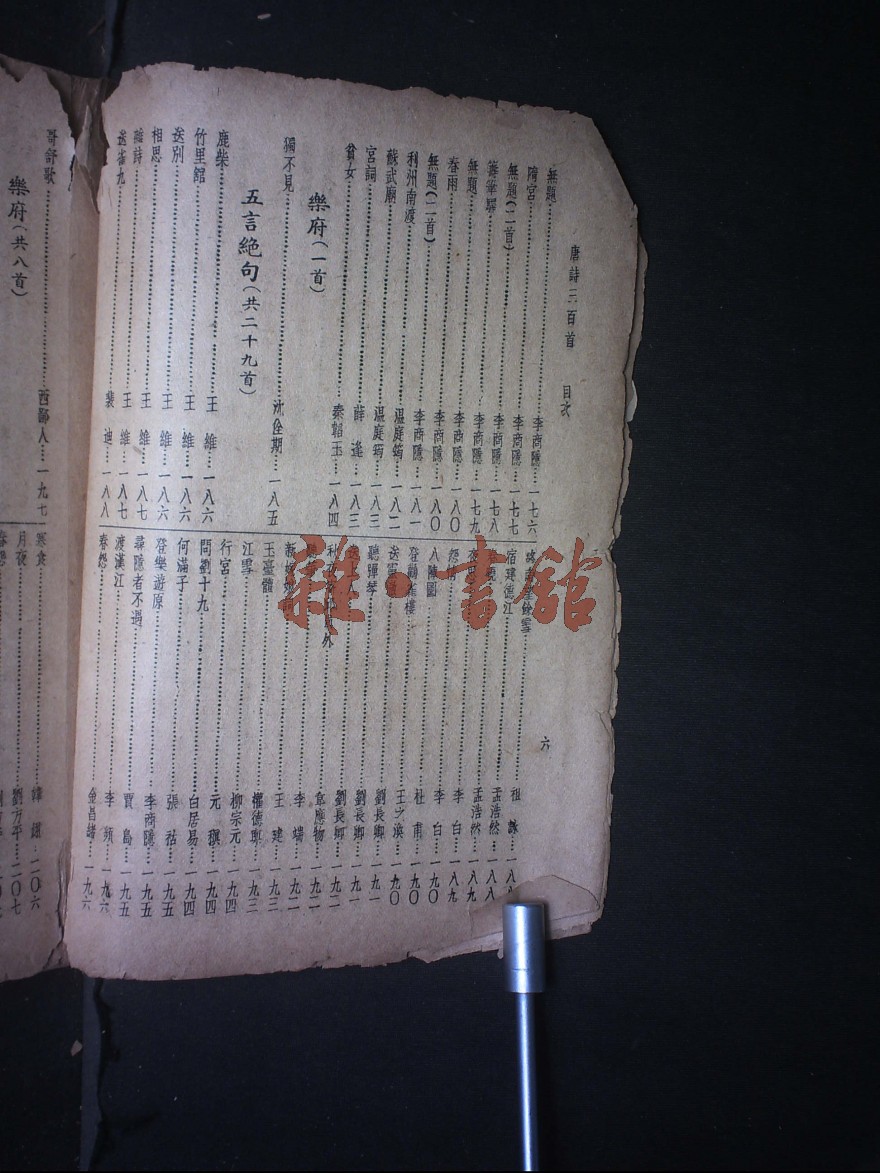 唐詩三百首 目次 六
無題 李商隱 一七六
隋宮 李商隱 一七七
無題(二首) 李商隱 一七八
籌筆驛 李商隱 一七九
無題 李商隱
春雨 李商隱 一八〇
無題(二首) 李商隱 一八〇
利州南渡 溫庭筠 一八一
蘇武廟 溫庭筠 一八二
宮詞 薛逢 一八三
貧女 秦韜玉 一八四
樂府(一首)
獨不見 沈佺期 一八五
五言絕句(共二十九首)
鹿柴 王維 一八六
竹里館 王維 一八六
送別 王維 一八六
相思 王維 一八七
雜詩 王維 一八七
送崔九 裴迪 一八八
餘雪 祖詠 一八
宿建德江 孟浩然 一八八
春曉 孟浩然 一八九
夜思 李白 一八九
怨情 李白 一九〇
八陣圖 杜甫 一九〇
登鸛雀樓 王之渙 一九〇
送 劉長卿 一九一
聽彈琴 劉長卿 一九一
送上人 劉長卿 一九二
外 韋應物 一九二
聽 李端 一九二
新嫁娘詞 王建 一九三
玉臺體 權德輿 一九三
江雪 柳宗元 一九四
行宮 元稹 一九四
問劉十九 白居易 一九四
何滿子 張祜 一九五
登樂遊原 李商隱 一九五
尋隱者不遇 賈島 一九五
渡漢江 李頻 一九六
春怨 金昌緒 一九六
哥舒歌 西鄙人 一九七
樂府(共八首)
寒食 韓翃 二〇六
月夜 劉方平 二〇七
春怨
雜·書館